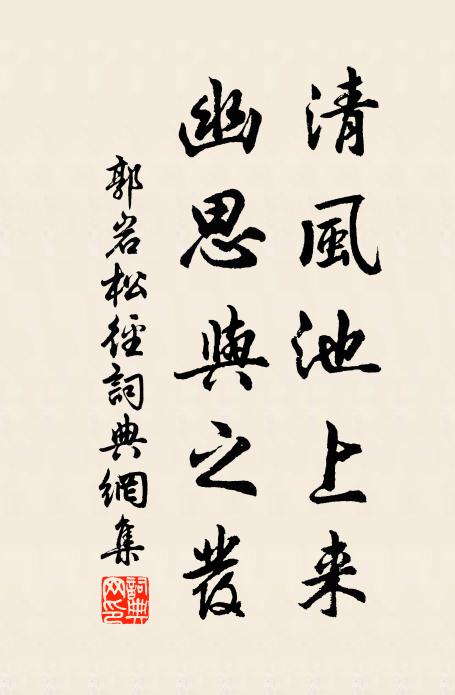 清風池上来
幽思與之發
郭岩松徑詞典網集
詞典网印